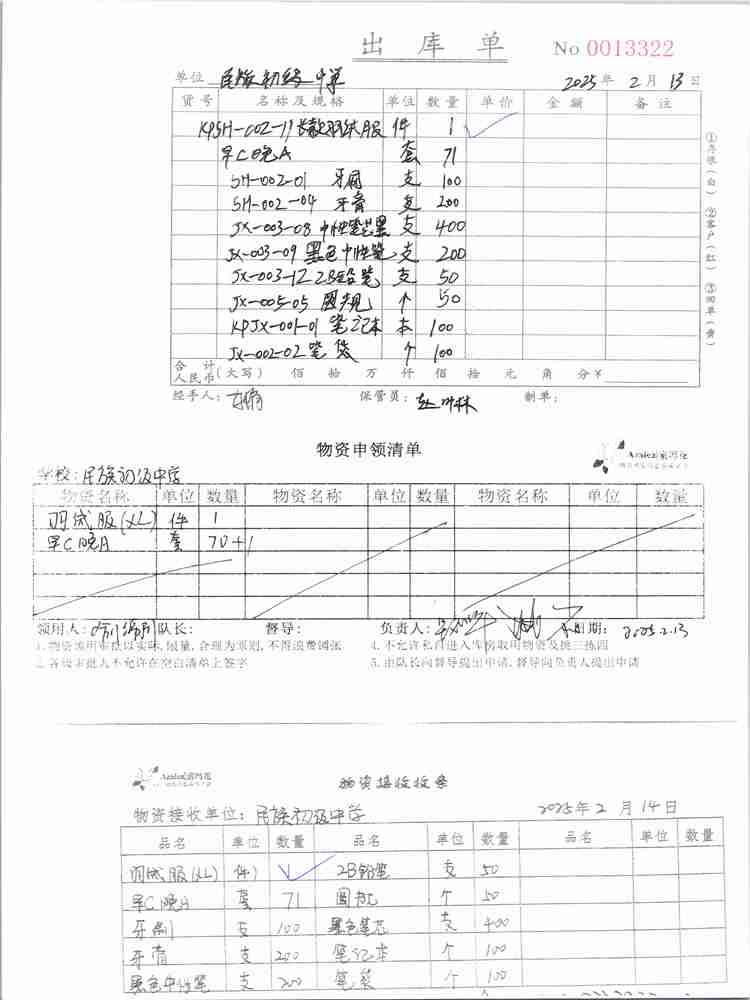 出库单 No 0013322
单位 民族初级中学 2025年 2月 13日
货号 名称及规格 单位 数量 单价 金额 备注
KPSH-002-11 长款羽绒服 件 1
早C晚A 套 71
SH-002-01 牙刷 支 100
SH-002-04 牙膏 支 200
JX-003-08 中性笔芯黑 支 400
JX-003-09 黑色中性笔 支 200
JX-003-12 2B铅笔 支 50
JX-005-05 圆规 个 50
KPJX-001-01 笔记本 本 100
JX-002-02 笔袋 个 100
合计人民币(大写) 佰 拾 万 仟 佰 拾 元 角 分¥
经手人: 保管员: 制单:
①存根(白) ②客户(红) ③回单(黄)
物资申领清单
Azalea索玛花
学校:民族初级中学
物资名称 单位 数量 物资名称 单位 数量 物资名称 单位 数量
羽绒服(XL) 件 1
早C晚A 套 70+1
领用人: 队长: 督导: 负责人: 日期: 2025.2.13
1.物资领用审批以实际,限量,合理为原则,不得浪费铺张 4.不允许私自进入库房取用物资及挑三拣四
2.各级审批人不允许在空白清单上签字 5.由队长向督导提出申请,督导向负责人提出申请
Azalea索玛花
物资接收收条
物资接收单位:民族初级中学 2025年2月14日
品名 单位 数量 品名 单位 数量 品名 单位 数量
羽绒服(XL) 件 2B铅笔 支 50
早C晚A 套 71 圆规 个 50
牙刷 支 100 黑色笔芯 支 400
牙膏 支 200 笔记本 个 100
黑色中性笔 支 200 笔袋 个 100